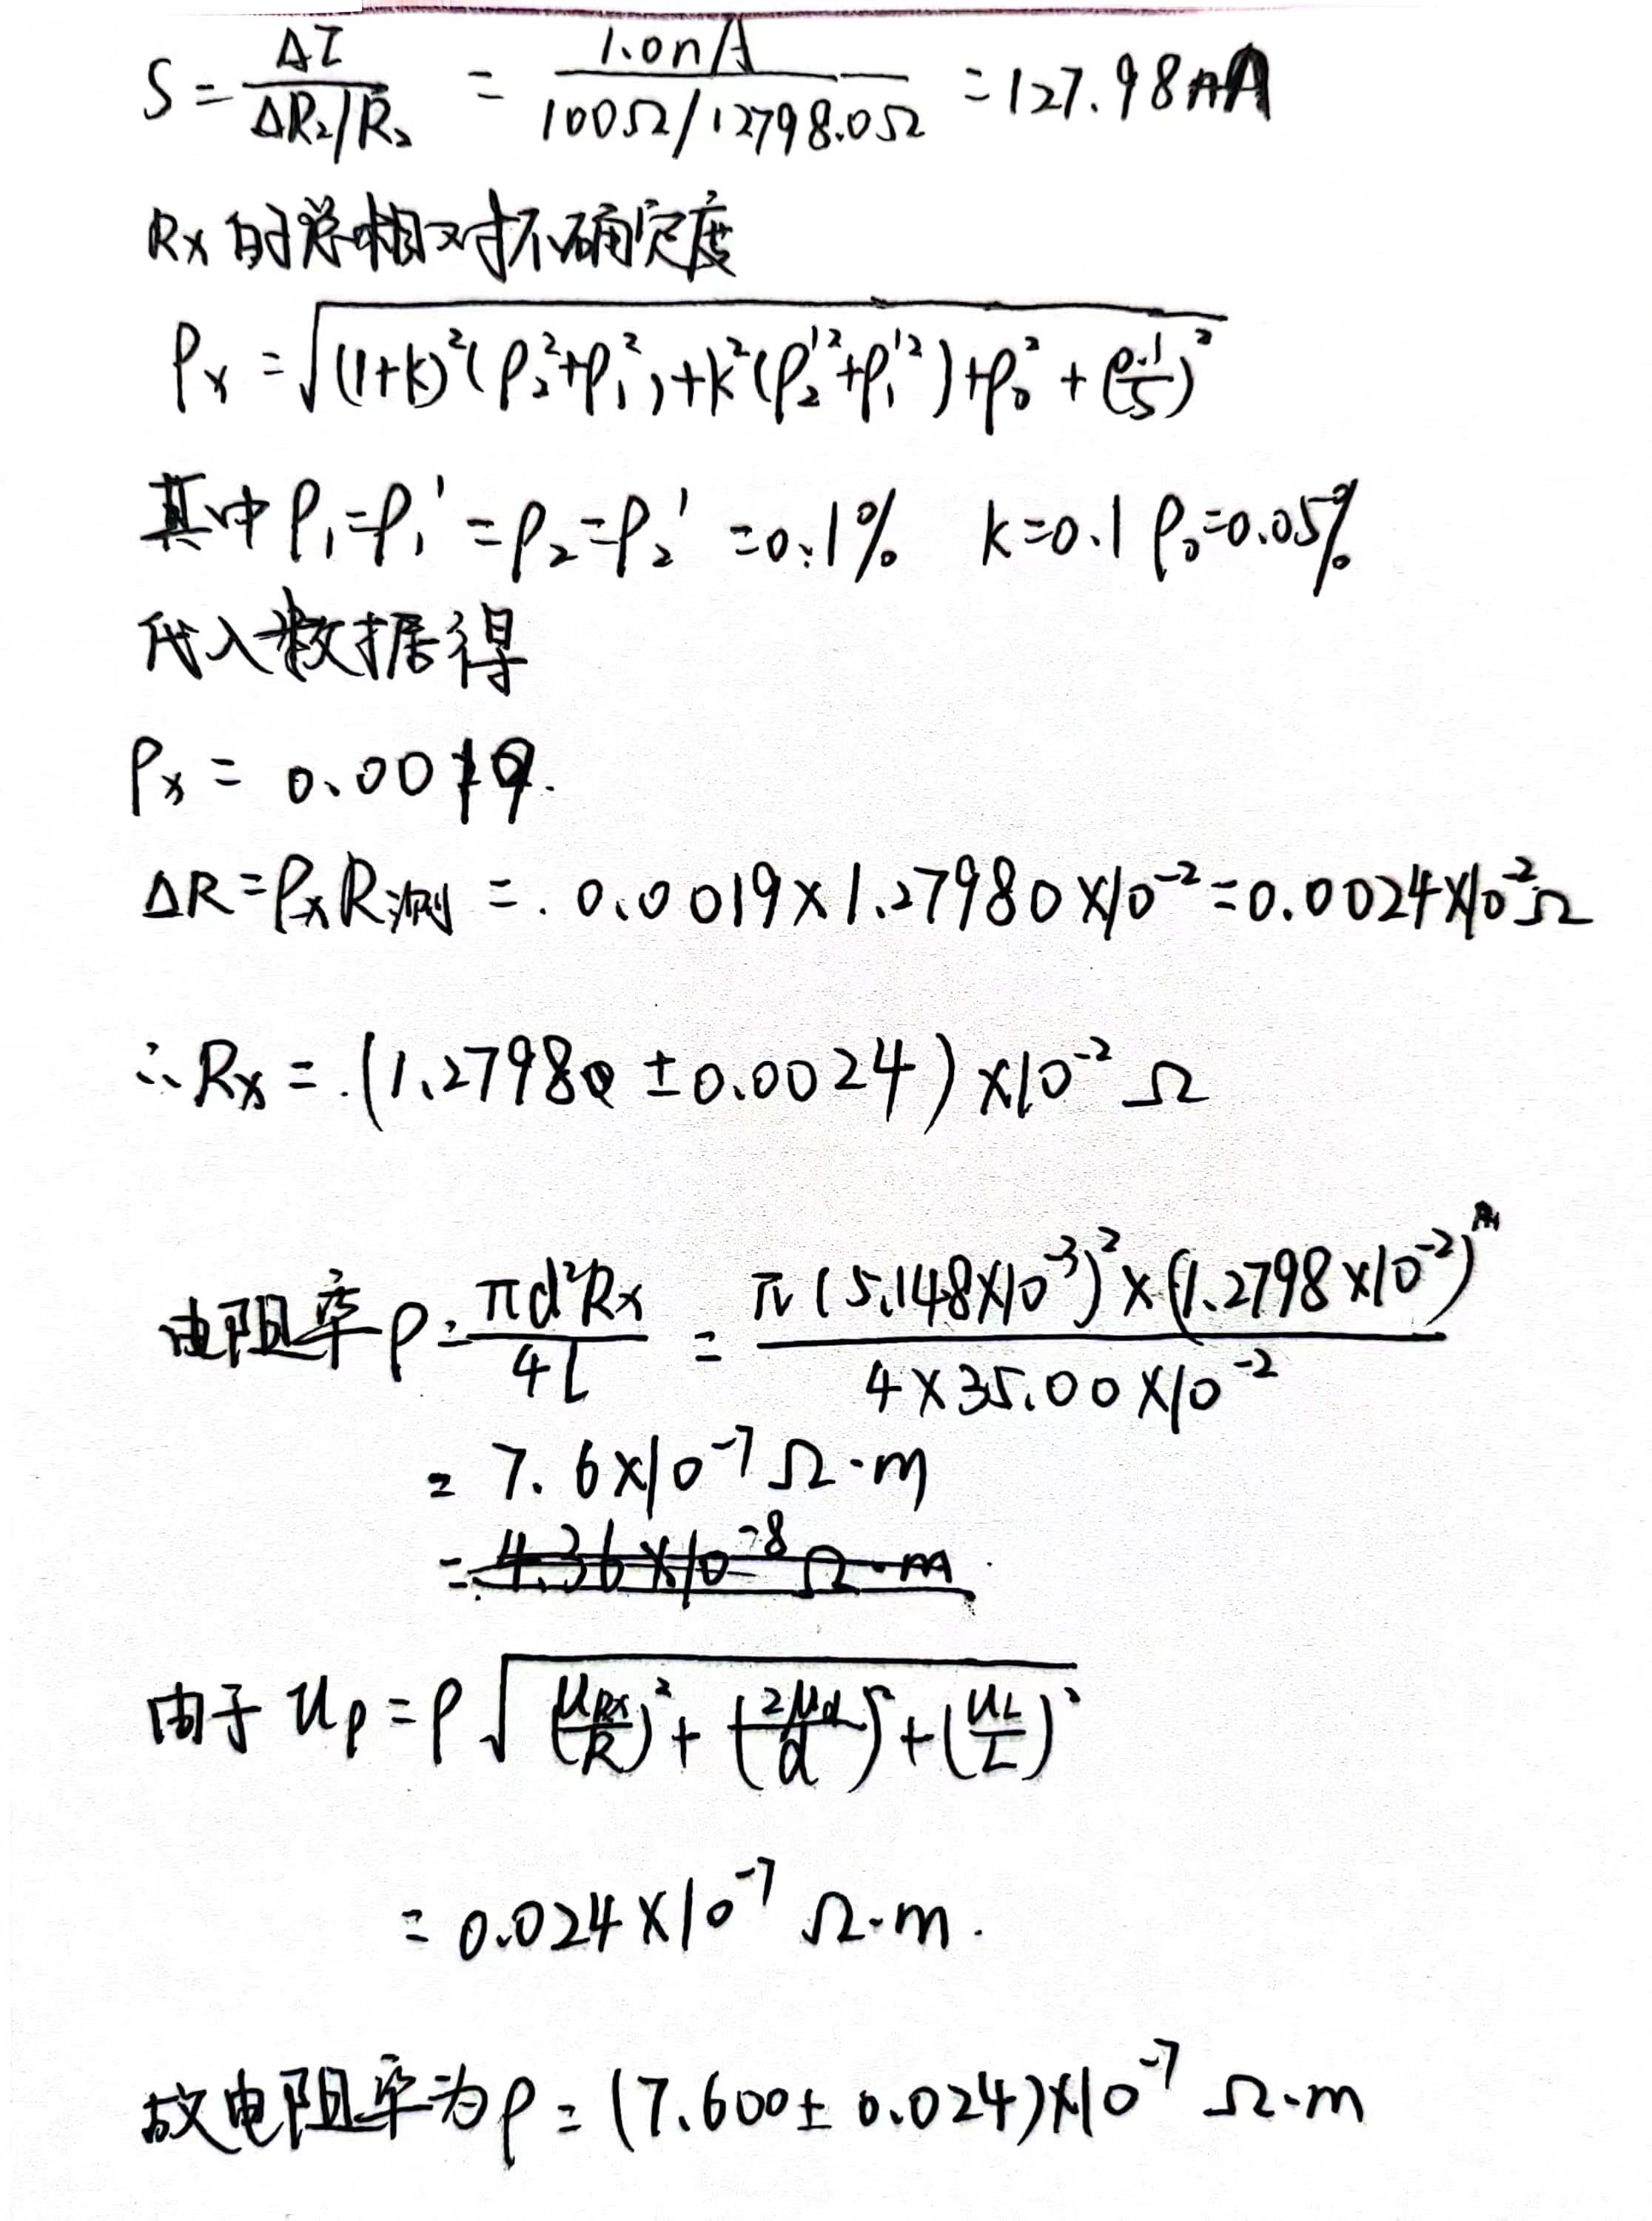 S = ΔI / (ΔR₂/R₂) = 1.0nA / (100Ω/12798.0Ω) = 127.98nA
Rx的总相对不确定度
ρx = √((1+k)²(ρ₂²+ρ₁²)+k²(ρ₂'²+ρ₁'²)+ρ₀²+(0.1/S)²)
其中 ρ₁=ρ₁'=ρ₂=ρ₂'=0.1% k=0.1 ρ₀=0.05%
代入数据得
ρx = 0.0019.
ΔR=ρxR测 = 0.0019×1.27980×10⁻²=0.0024×10⁻²Ω
∴Rx = (1.27980±0.0024)×10⁻² Ω
电阻率ρ = πd²Rx / 4l = π(5.148×10⁻³)²×(1.2798×10⁻²) / 4×35.00×10⁻²
= 7.6×10⁻⁷Ω·m
= 4.36×10⁻⁸Ω·m
由于 uρ=ρ√((uRx/R)²+(2ud/d)²+(uL/L)²)
= 0.024×10⁻⁷ Ω·m.
故电阻率为ρ = (7.600±0.024)×10⁻⁷ Ω·m